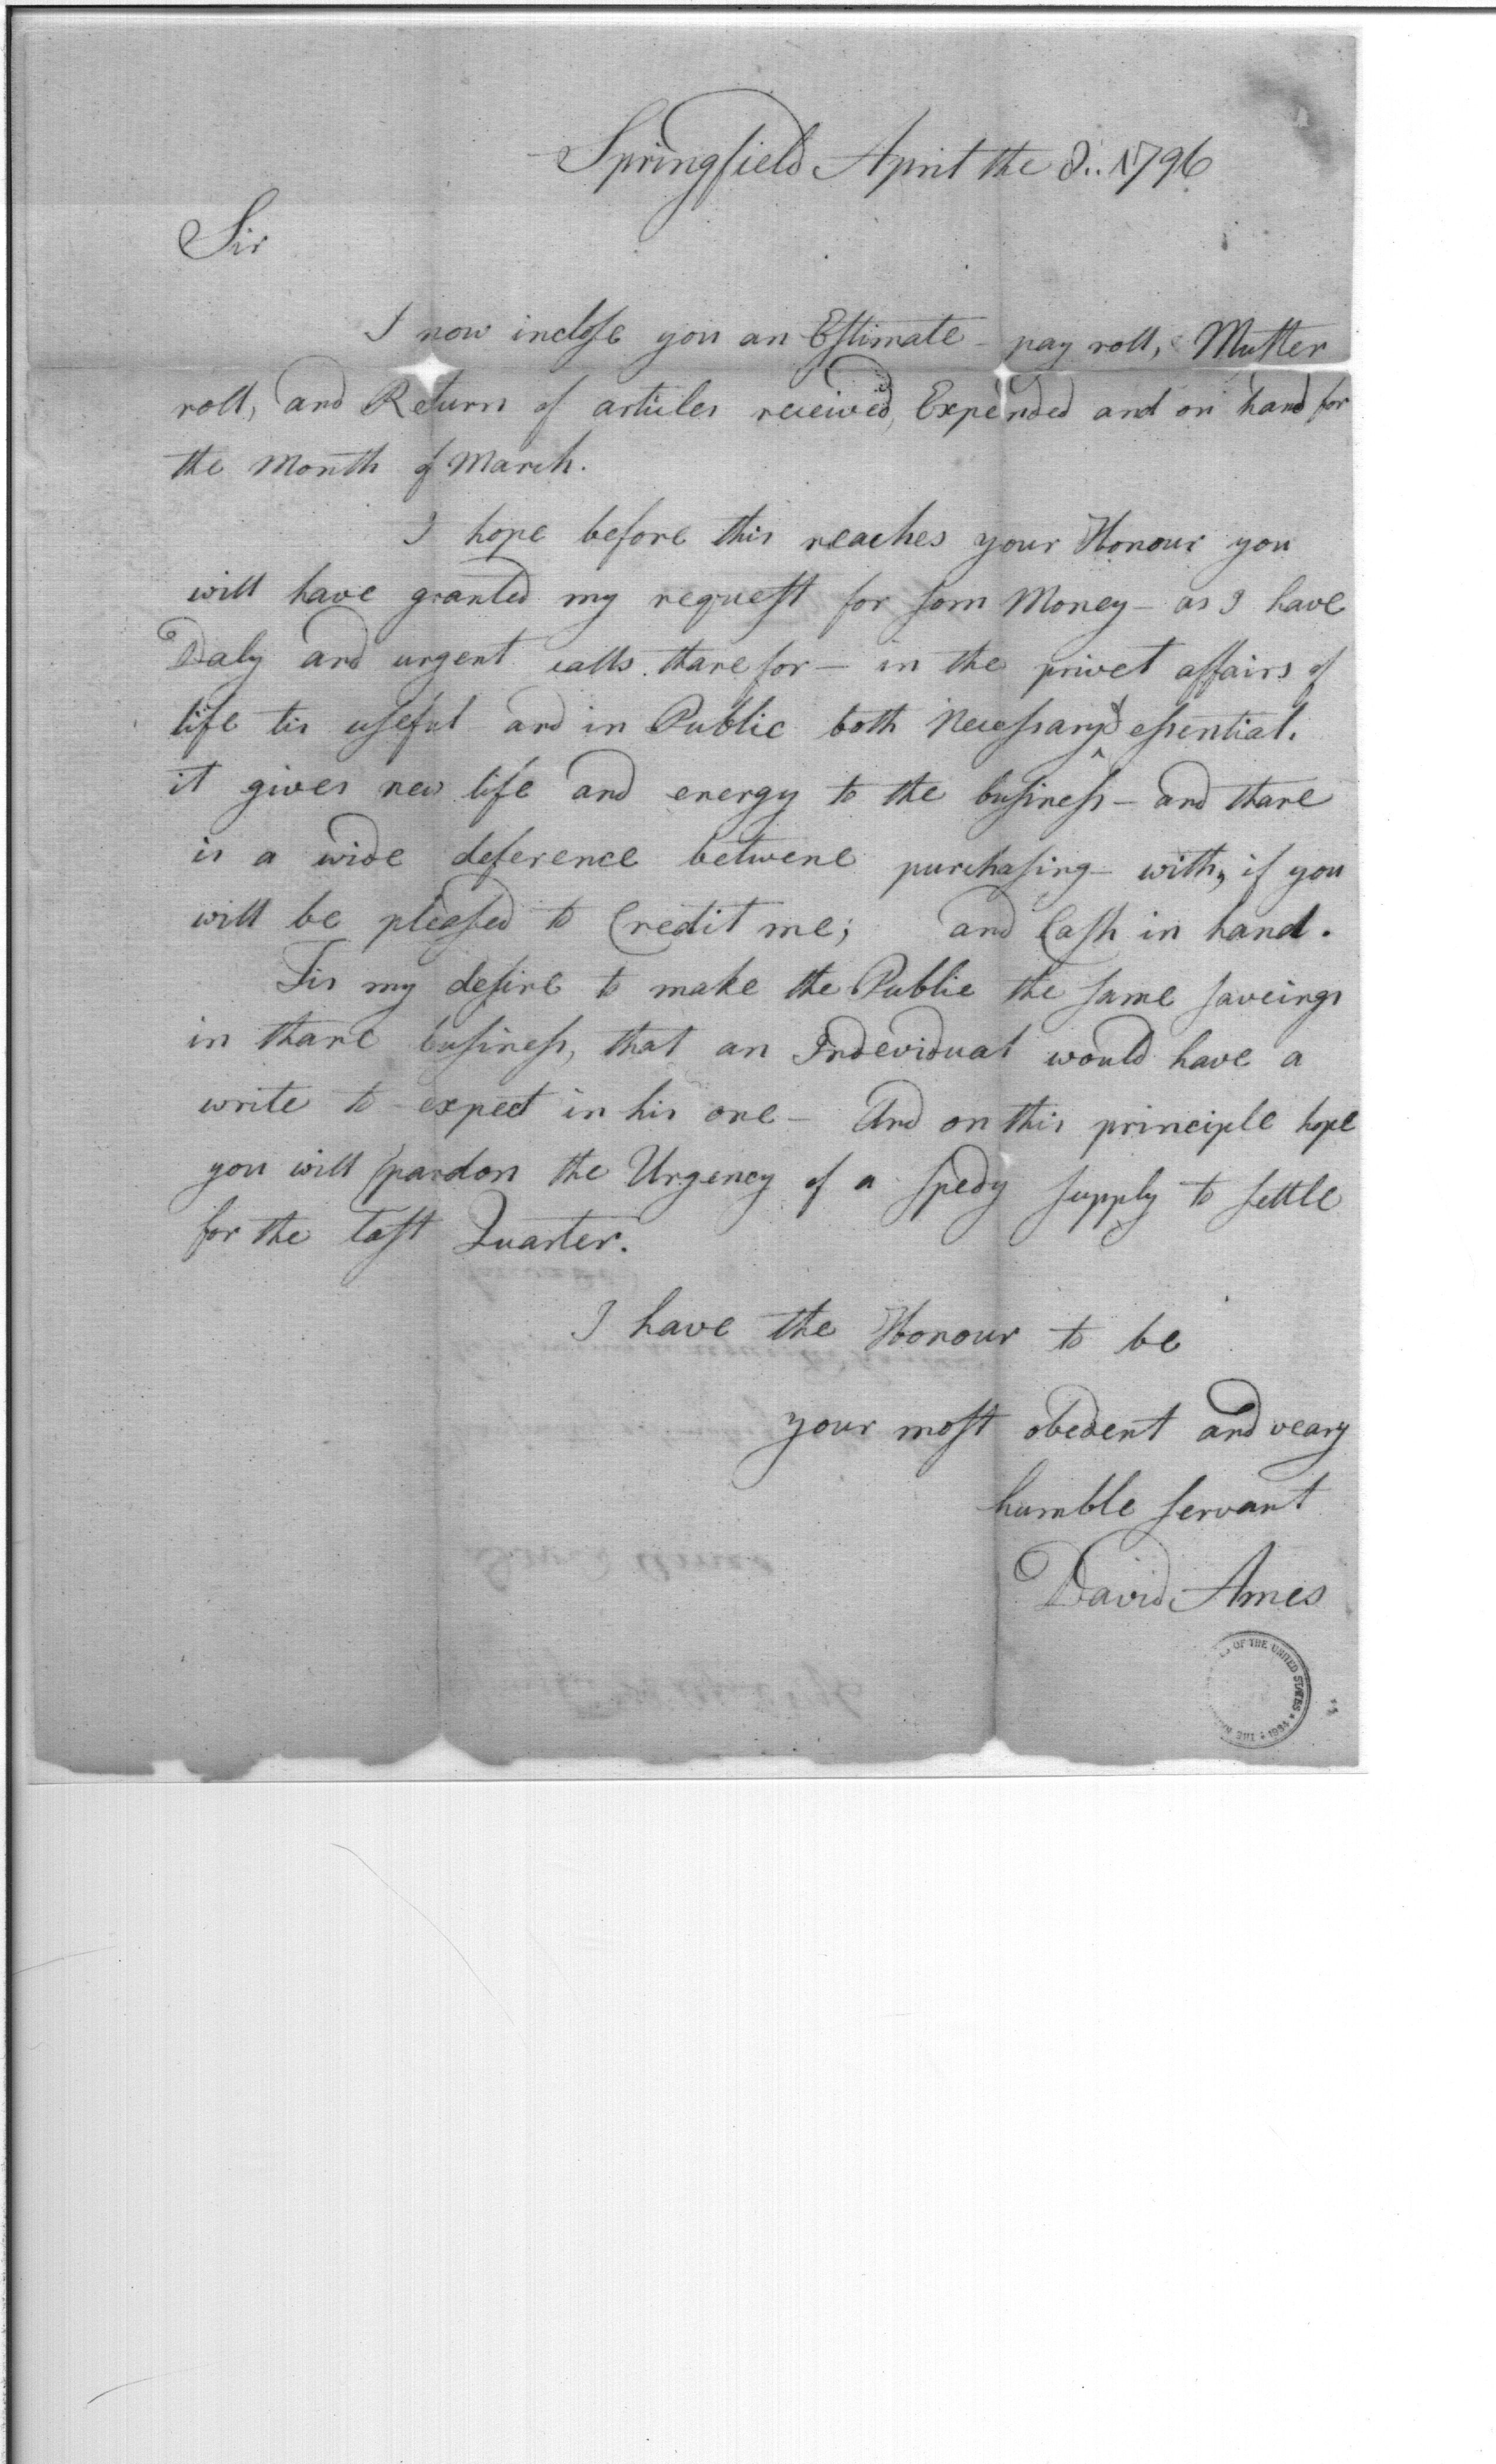 Springfield April the 8.. 1796
Sir
I now inclose you an Estimate - pay roll, Muster
roll, and Return of articles received, Expended and on hand for
the Month of March.
I hope before this reaches your Honour you
will have granted my request for som Money - as I have
Daly and urgent calls thare for - in the privet affairs of
life tis useful and in Public both Necessary & essential.
it gives new life and energy to the business - and thare
is a wide deference betwene purchasing - with, if you
will be pleased to Credit me; and Cash in hand.
Tis my desire to make the Public the same saveings
in thare business, that an Indevidual would have a
write to expect in his one - And on this principle hope
you will pardon the Urgency of a spedy supply to settle
for the last Quarter.
I have the Honour to be
your most obedent and veary
humble servant
David Ames
OF THE UNITED STATES • 1934 • THE